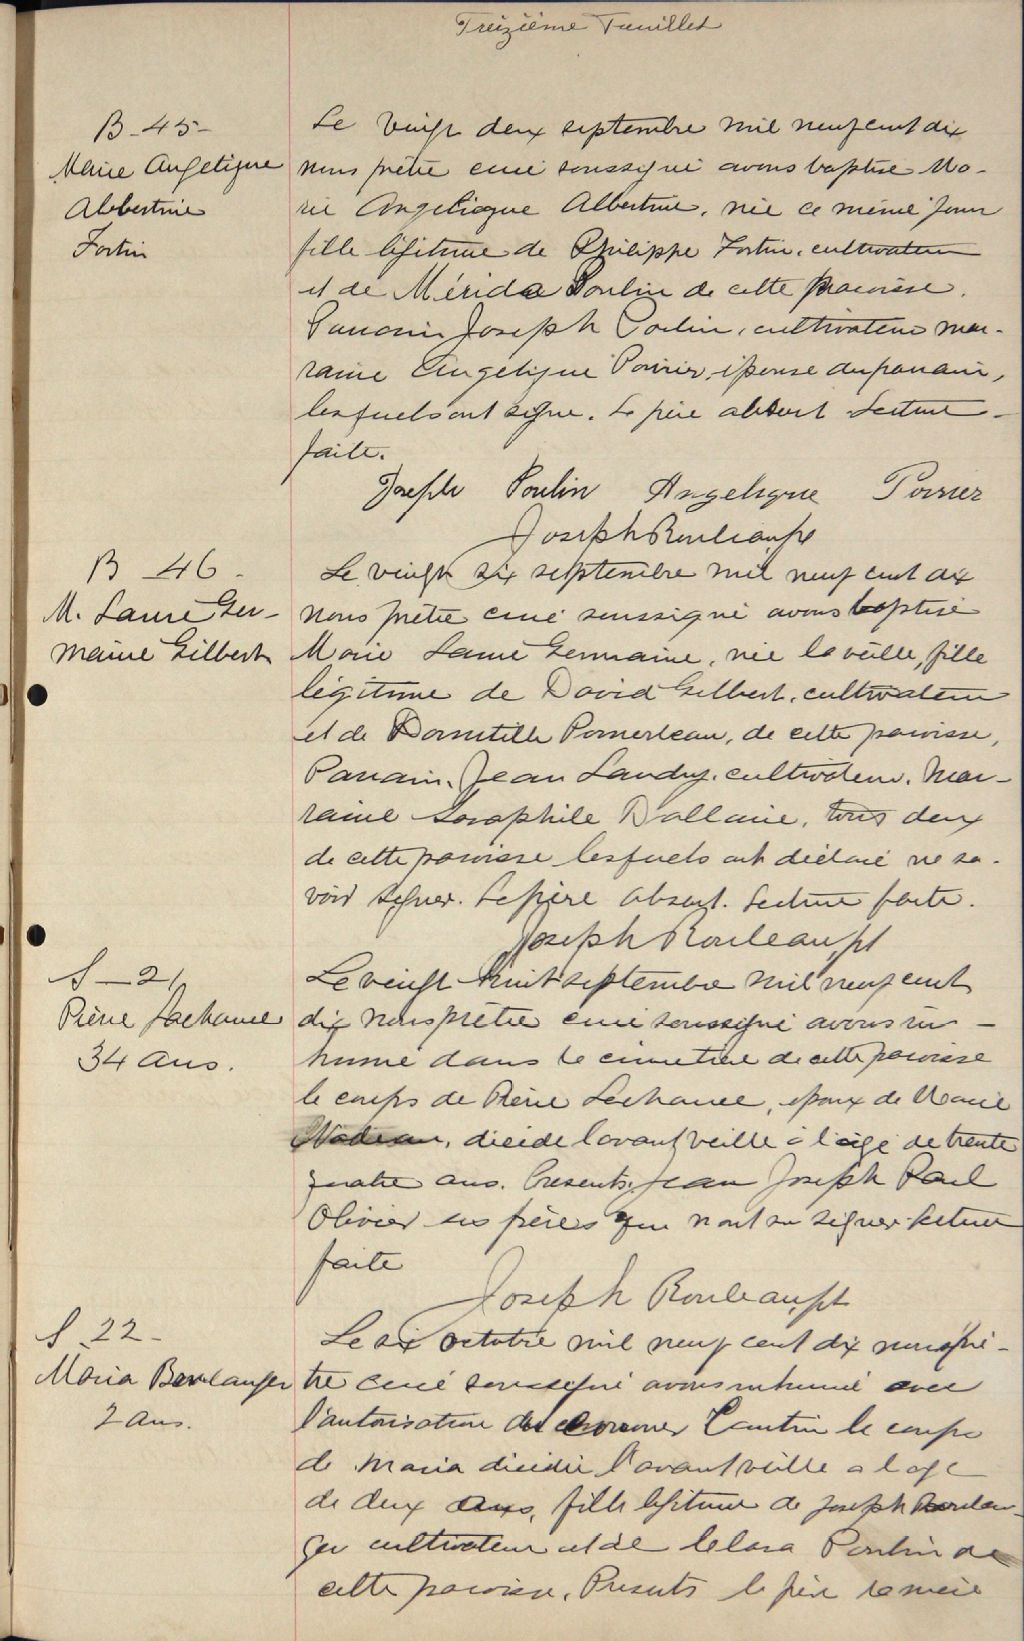 Treizième Feuillet
B-45-
Marie Angélique
Albertine
Fortin
Le vingt deux septembre mil neuf cent dix
nous prêtre curé soussigné avons baptisé Ma-
rie Angélique Albertine, née ce même jour
fille légitime de Philippe Fortin, cultivateur
et de Mérida Poulin de cette paroisse.
Parrain Joseph Poulin, cultivateur mar-
raine Angélique Poirier, épouse du parrain,
lesquels ont signé. Le père absent Lecture
faite.
Joseph Poulin Angelique Poirier
Joseph Rouleau, ptr
B 46-
M. Laure Ger-
maine Gilbert
Le vingt six septembre mil neuf cent dix
nous prêtre curé soussigné avons baptisé
Marie Laure Germaine, née la veille, fille
légitime de David Gilbert, cultivateur
et de Domitille Pomerleau, de cette paroisse,
Parrain, Jean Landry, cultivateur. Mar-
raine Dallaire, tous deux
de cette paroisse lesquels ont déclaré ne sa-
voir signer. Le père absent. Lecture faite.
Joseph Rouleau, pt
S-21
Pierre Lachance
34 ans.
Le vingt huit septembre mil neuf cent
dix nous prêtre curé soussigné avons in-
humé dans le cimetière de cette paroisse
le corps de Pierre Lachance, époux de Marie
Nadeau, décédé l'avant veille à l'âge de trente
quatre ans. Présents, Jean Joseph Paul
Olivier ses frères qui n'ont su signer. Lecture
faite
Joseph Rouleau, pt
S 22-
Maria Boulanger
2 ans.
Le six octobre mil neuf cent dix nous prê-
tre curé soussigné avons inhumé avec
l'autorisation du coroner le corps
de Maria décédée l'avant veille a l'age
de deux ans, fille légitime de Joseph Boulan-
ger cultivateur et de Clara Poulin de
cette paroisse. Présents le père la mère